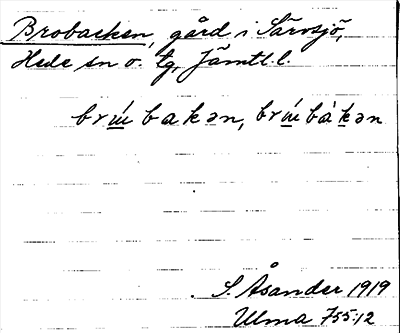 Brobacken, gård i Särvsjö,
Hede sn o. tg, Jämtl. l.
brú̲bakən, brú̲bàk̲ən
S. Åsander 1919
Ulma 755:12